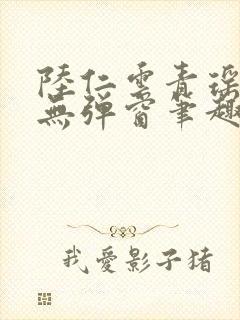 陸仁雲青瑶
無彈窗筆趣
我愛影子猪